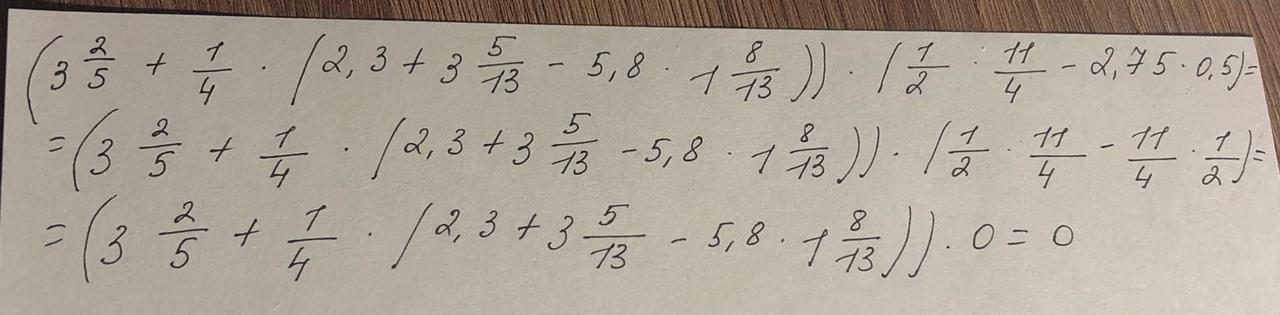 (3 2/5 + 1/4 · (2,3 + 3 5/13 - 5,8 · 1 8/13)) · (1/2 · 11/4 - 2,75 · 0,5) =
= (3 2/5 + 1/4 · (2,3 + 3 5/13 - 5,8 · 1 8/13)) · (1/2 · 11/4 - 11/4 · 1/2) =
= (3 2/5 + 1/4 · (2,3 + 3 5/13 - 5,8 · 1 8/13)) · 0 = 0